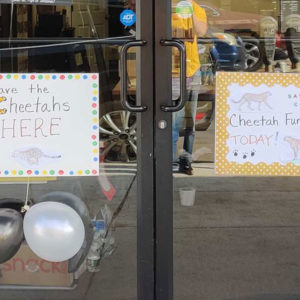 ADT
ave the
Cheetahs
HERE
SA
Cheetah Fun
TODAY!
snack